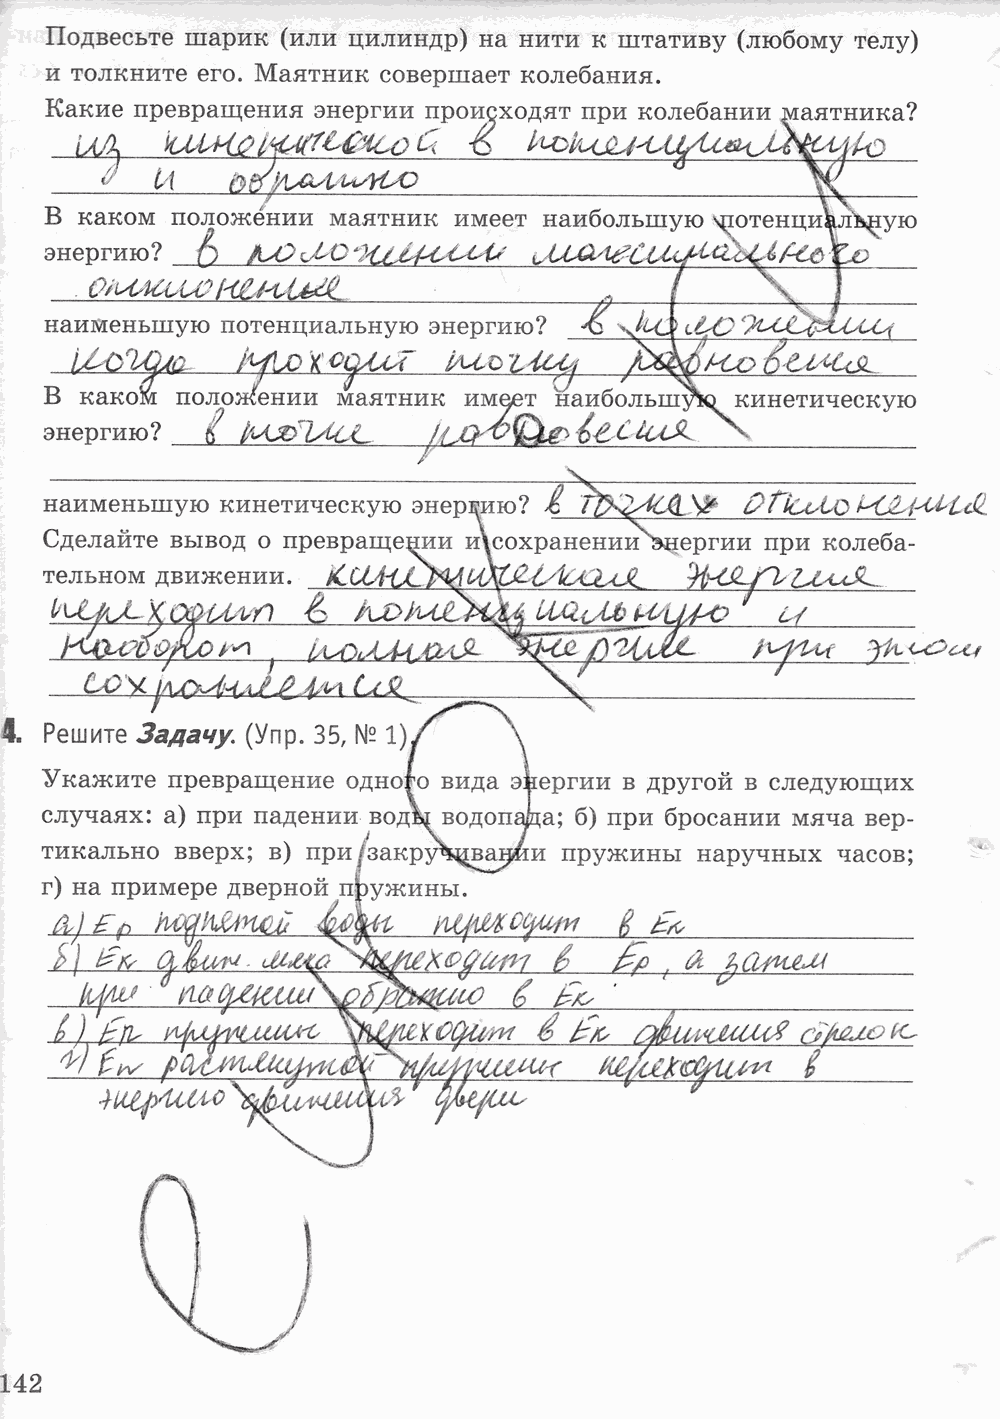 Подвесьте шарик (или цилиндр) на нити к штативу (любому телу)
и толкните его. Маятник совершает колебания.
Какие превращения энергии происходят при колебании маятника?
из кинетической в потенциальную
и обратно
В каком положении маятник имеет наибольшую потенциальную
энергию? в положении максимального
отклонения
наименьшую потенциальную энергию? в положении
когда проходит точку равновесия
В каком положении маятник имеет наибольшую кинетическую
энергию? в точке равновесия
наименьшую кинетическую энергию? в точках отклонения
Сделайте вывод о превращении и сохранении энергии при колеба-
тельном движении. кинетическая энергия
переходит в потенциальную и
наоборот, полная энергия при этом
сохраняется
4. Решите Задачу. (Упр. 35, № 1).
Укажите превращение одного вида энергии в другой в следующих
случаях: а) при падении воды водопада; б) при бросании мяча вер-
тикально вверх; в) при закручивании пружины наручных часов;
г) на примере дверной пружины.
а) Ер поднятой воды переходит в Ек
б) Ек движ. мяча переходит в Ер, а затем
при падении обратно в Ек
в) Еп пружины переходит в Ек движения стрелок
г) Еп растянутой пружины переходит в
энергию движения двери
142